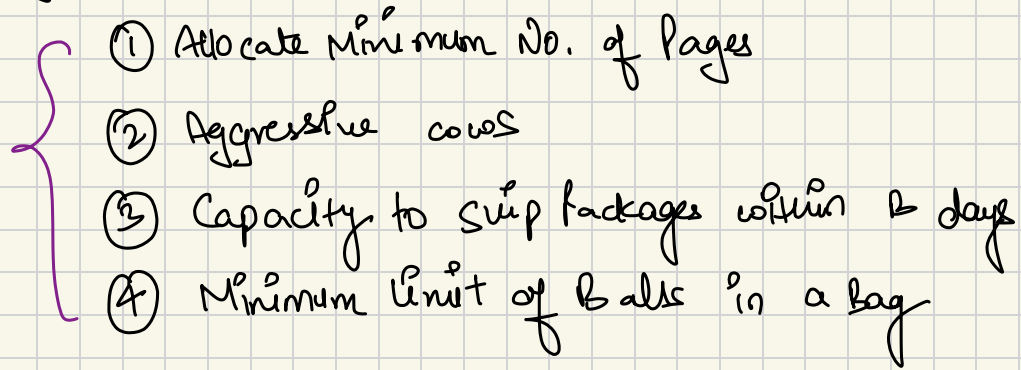 ① Allocate Minimum No. of Pages
② Aggressive cows
③ Capacity to ship Packages within B days
④ Minimum limit of Balls in a Bag